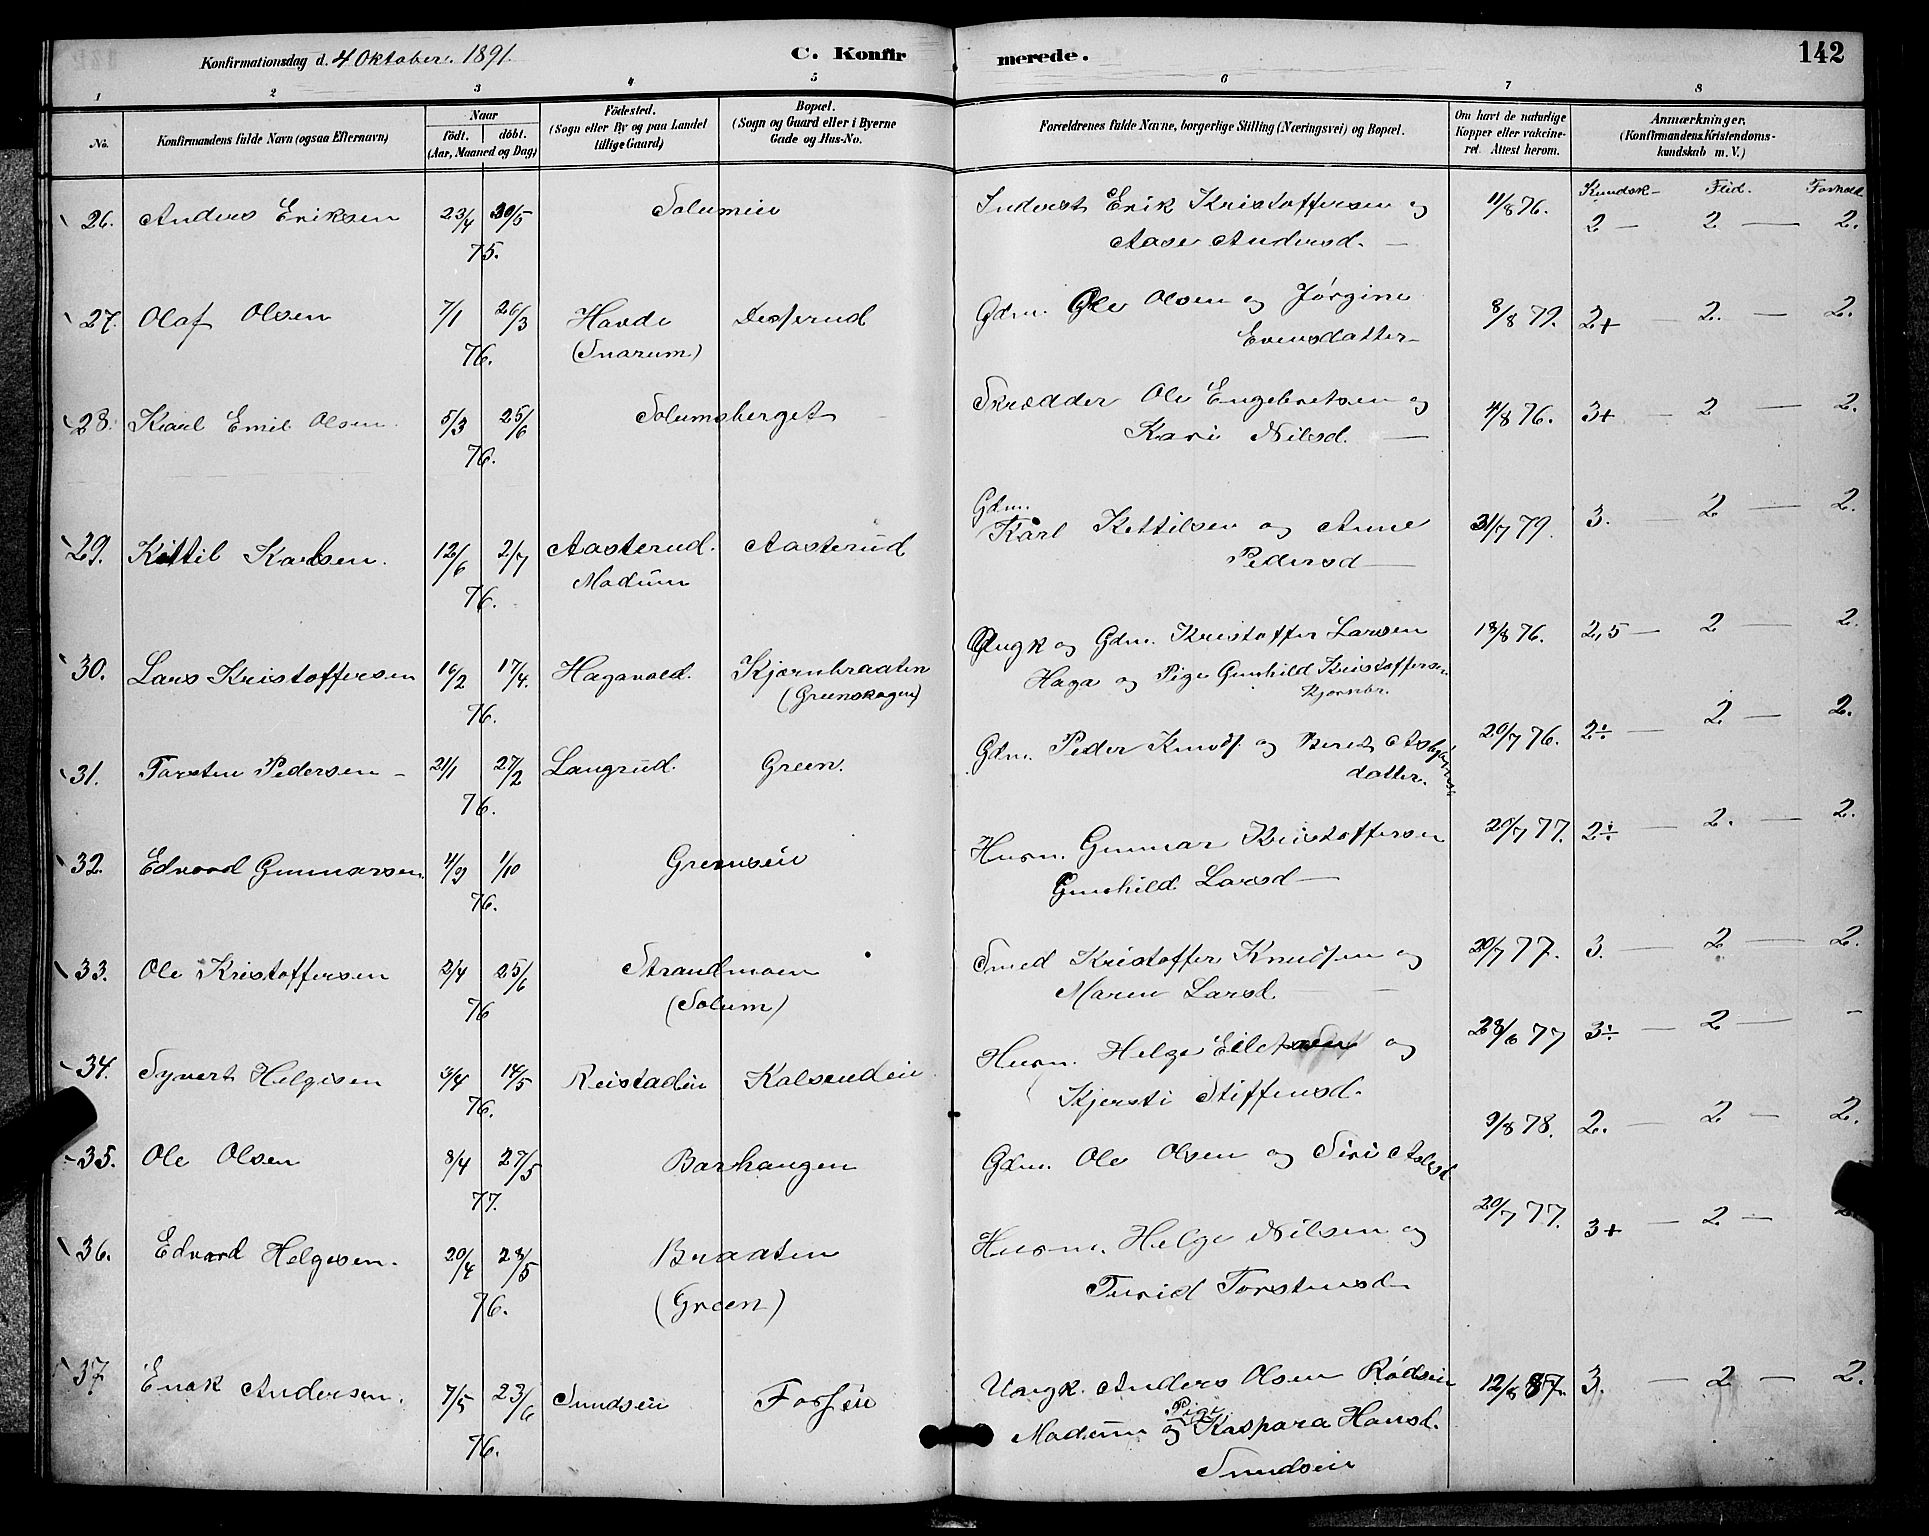 Konfirmationsdag d. 4 Oktober. 1891.
C. Konfirmerede.
142
1 2 3 4 5 6 7 8
No.
Konfirmandens fulde Navn (ogsaa Efternavn)
Naar
födt. döbt.
(Aar, Maaned og Dag)
Födested.
(Sogn eller By og paa Landet
tillige Gaard)
Bopæl.
(Sogn og Gaard eller i Byerne
Gade og Hus-No.
Forældrenes fulde Navne, borgerlige Stilling (Næringsvei) og Bopæl.
Om havt de naturlige
Kopper eller vakcine-
ret. Attest herom.
Anmærkninger.
(Konfirmandens Kristendoms-
kundskab m. V.)
Kundsk- Flid. Forhold
26. Anders Eriksen 23/4 30/5 Solumeie Inderst Erik Kristoffersen og 11/8 76. 2 — 2 — 2.
75. Aase Andersd. —
27. Olaf Olsen 7/1 26/3 Hovde Desserud Gdm. Ole Olsen og Jörgine 8/8 79. 2+ — 2. — 2.
76. (Snarum) Evensdatter
28. Karl Emil Olsen. 5/3 25/6 Solumsberget Skrædder Ole Engebretsen og 4/8 76. 3+ — 2 — 2.
76. Kari Nilsd. —
29. Kittil Karlsen. 12/6 2/7 Aasterud. Aasterud Gdm. Karl Kittilsen og Anne 31/7 79. 3. — 2 — 2.
76. Modum Pedersd —
30. Lars Kristoffersen 16/2 17/4. Hagavold. Kjørnbraaten Ungk og Gdm. Kristoffer Larsen 18/8 76. 2,5 — 2 — 2.
76. (Greenskogen) Haga og Pige Gunhild Kristoffersen
Kjørnbr.
31. Torsten Pedersen — 21/1 27/2 Langrud. Green. Gdm. Peder Knuds. og Beret Asbjørns 20/7 76. 2÷ — 2 — 2.
76. datter.
32. Edvard Gunnarsen 4/9 1/10 Greenseie Husm. Gunnar Kristoffersen 20/7 77. 2÷ — 2. — 2.
76. Gunhild Larsd —
33. Ole Kristoffersen 2/4 25/6 Strandmoen Smed Kristoffer Knudsen og 20/7 77. 3. — 2 — 2.
76 (Solum) Maren Larsd. —
34. Syvert Helgesen 3/4 14/5 Reistadeie Kolsrudeie Husm. Helge og 28/6 77 3÷ — 2 — -
76. Kjersti Stiffensd.
35. Ole Olsen 8/4 27/5 Barhaugen Gdm. Ole Olsen og Siri Aslesd 9/8 78. 2. — 2 — 2.
77.
36. Edvard Helgesen. 20/4 28/5 Braaten Husm. Helge Nilsen og 20/7 77. 3+ — 2 — 2.
76. (Green) Turid Torstensd
37 Enok Andersen. 7/5 23/6 Sundseie Forseie Ungk. Anders Olsen Rödseie 12/8 87. 3. — 2 — 2.
76. Modum og Pige Kaspara Hansd.
Sundseie